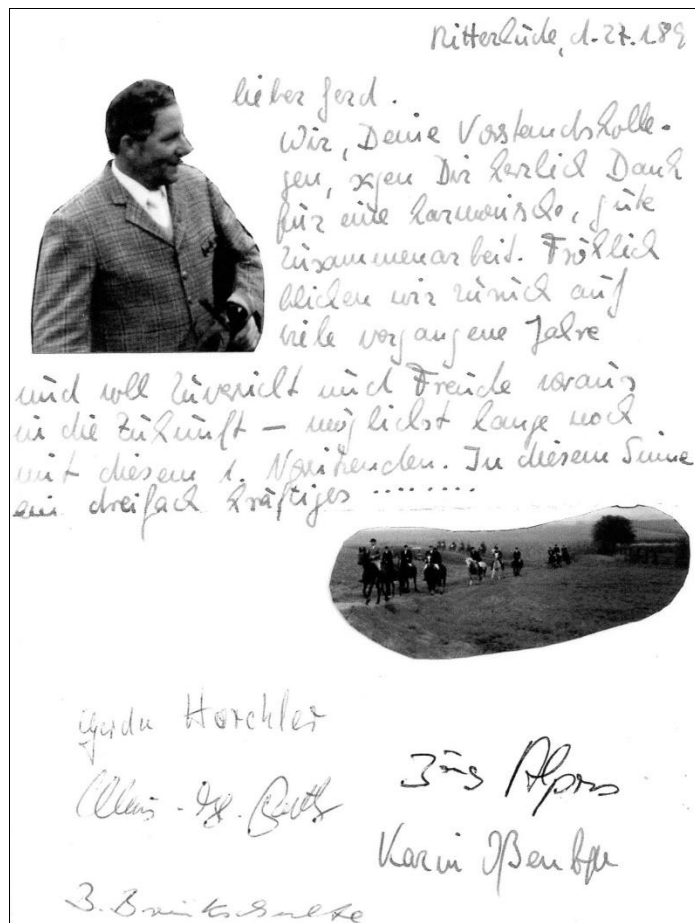 Ritterhude, d. 27.1.89
lieber Gerd.
Wir, Deine Vorstandskolle-
gen, sagen Dir herzlich Dank
für eine harmonische, gute
Zusammenarbeit. Fröhlich
blicken wir zurück auf
viele vergangene Jahre
und voll Zuversicht und Freude voraus
in die Zukunft – möglichst lange noch
mit diesem 1. Vorsitzenden. In diesem Sinne
ein dreifach kräftiges ........
Horchler
Jörg Alpers
Karin